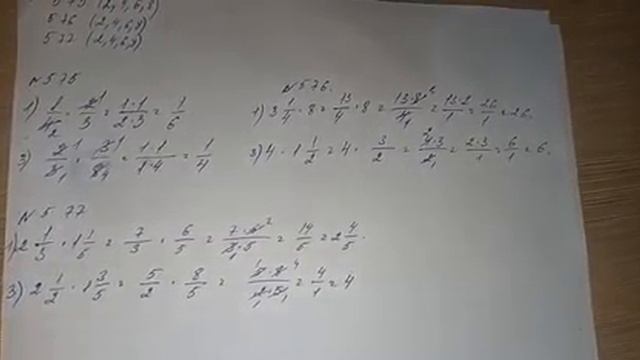 575 (2,4,6,8)
576 (2,4,6,8)
577 (2,4,6,8)
N575
1) 1/4₂ · 2¹/3 = 1·1/2·3 = 1/6
3) 2¹/3₁ · 3¹/8₄ = 1·1/1·4 = 1/4
N576.
1) 3 1/4 · 8 = 13/4 · 8 = 13·8²/4₁ = 13·2/1 = 26/1 = 26.
3) 4 · 1 1/2 = 4 · 3/2 = ²4·3/2₁ = 2·3/1 = 6/1 = 6.
N577
1) 2 1/3 · 1 1/5 = 7/3 · 6/5 = 7·6²/3₁·5 = 14/5 = 2 4/5.
3) 2 1/2 · 1 3/5 = 5/2 · 8/5 = ¹5·8⁴/2₁·5₁ = 4/1 = 4